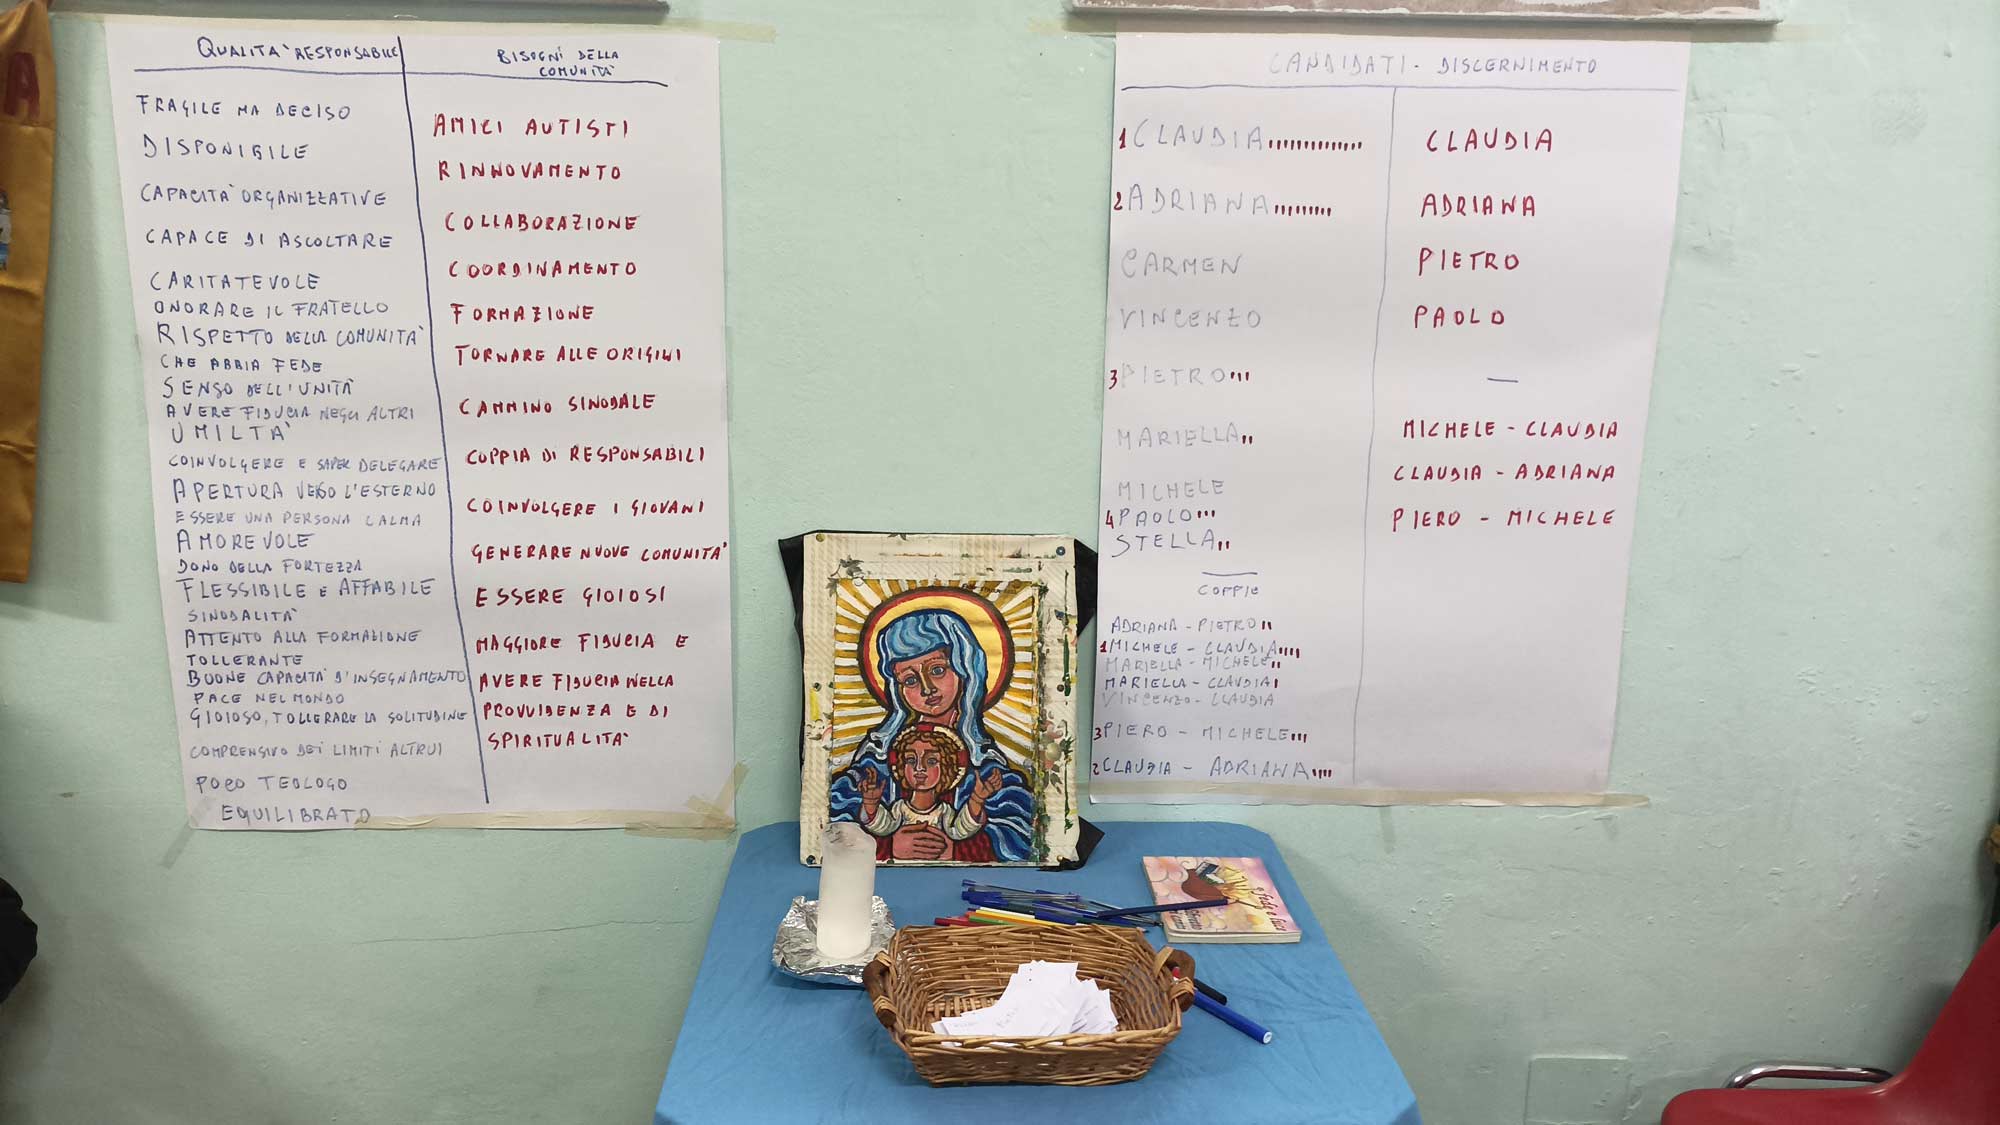 QUALITA' RESPONSABILE
FRAGILE MA DECISO
DISPONIBILE
CAPACITA' ORGANIZZATIVE
CAPACE DI ASCOLTARE
CARITATEVOLE
ONORARE IL FRATELLO
RISPETTO DELLA COMUNITA'
CHE ABBIA FEDE
SENSO DELL'UNITA'
AVERE FIDUCIA NEGLI ALTRI
UMILTA'
COINVOLGERE E SAPER DELEGARE
APERTURA VERSO L'ESTERNO
ESSERE UNA PERSONA CALMA
AMOREVOLE
DONO DELLA FORTEZZA
FLESSIBILE E AFFABILE
SINODALITA'
ATTENTO ALLA FORMAZIONE
TOLLERANTE
BUONE CAPACITA' D'INSEGNAMENTO
PACE NEL MONDO
GIOIOSO, TOLLERARE LA SOLITUDINE
COMPRENSIVO DEI LIMITI ALTRUI
POCO TEOLOGO
EQUILIBRATO
BISOGNI DELLA
COMUNITA'
AMICI AUTISTI
RINNOVAMENTO
COLLABORAZIONE
COORDINAMENTO
FORMAZIONE
TORNARE ALLE ORIGINI
CAMMINO SINODALE
COPPIA DI RESPONSABILI
COINVOLGERE I GIOVANI
GENERARE NUOVE COMUNITA'
ESSERE GIOIOSI
MAGGIORE FIDUCIA E
AVERE FIDUCIA NELLA
PROVVIDENZA E DI
SPIRITUALITA'
CANDIDATI - DISCERNIMENTO
1 CLAUDIA
2 ADRIANA
CARMEN
VINCENZO
3 PIETRO
MARIELLA
MICHELE
4 PAOLO
STELLA
COPPIE
ADRIANA - PIETRO
1 MICHELE - CLAUDIA
MARIELLA - MICHELE
MARIELLA - CLAUDIA
VINCENZO - CLAUDIA
3 PIERO - MICHELE
2 CLAUDIA - ADRIANA
CLAUDIA
ADRIANA
PIETRO
PAOLO
MICHELE - CLAUDIA
CLAUDIA - ADRIANA
PIERO - MICHELE
A